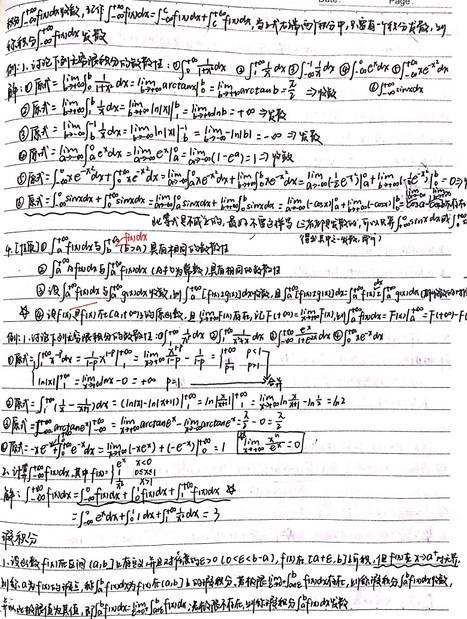 Date. Page.
积分∫_{-∞}^{+∞}f(x)dx收敛,记作∫_{-∞}^{+∞}f(x)dx=∫_{-∞}^{c}f(x)dx+∫_{c}^{+∞}f(x)dx,当上式右端两个积分中,只要有一个积分发散,则
称积分∫_{-∞}^{+∞}f(x)dx发散
例:1.讨论下列无穷限积分的敛散性:①∫_{0}^{+∞}1/(1+x²)dx ②∫_{1}^{+∞}1/x dx ③∫_{-∞}^{-1}1/x dx ④∫_{-∞}^{0}e^x dx ⑤∫_{-∞}^{+∞}xe^{-x²}dx
⑥∫_{-∞}^{+∞}sinxdx
解:①原式=lim_{b→+∞}∫_{0}^{b}1/(1+x²)dx=lim_{b→+∞}arctanx|_{0}^{b}=lim_{b→+∞}arctanb=π/2 ⇒收敛
②原式=lim_{b→+∞}∫_{1}^{b}1/x dx=lim_{b→+∞}ln|x||_{1}^{b}=lim_{b→+∞}lnb=+∞⇒发散
③原式=lim_{b→-∞}∫_{b}^{-1}1/x dx=lim_{b→-∞}ln|x||_{b}^{-1}=lim_{b→-∞}-ln|b|=-∞⇒发散
④原式=lim_{a→-∞}∫_{a}^{0}e^x dx=lim_{a→-∞}e^x|_{a}^{0}=lim_{a→-∞}(1-e^a)=1⇒收敛
⑤原式=∫_{-∞}^{0}xe^{-x²}dx+∫_{0}^{+∞}xe^{-x²}dx=lim_{a→-∞}∫_{a}^{0}xe^{-x²}dx+lim_{b→+∞}∫_{0}^{b}xe^{-x²}dx=
⑥原式=∫_{-∞}^{0}sinxdx+∫_{0}^{+∞}sinxdx=lim_{a→-∞}∫_{a}^{0}sinxdx+lim_{b→+∞}∫_{0}^{b}sinxdx=lim_{a→-∞}(-cosx)|_{a}^{0}+lim_{b→+∞}(-cosx)|_{0}^{b}
4.[性质]①∫_{a}^{+∞}f(x)dx与∫_{b}^{+∞}f(x)dx(b>a)具有相同的敛散性
②∫_{a}^{+∞}f(x)dx与∫_{a}^{+∞}Af(x)dx(A≠0为常数)具有相同的敛散性
③设∫_{a}^{+∞}f(x)dx与∫_{a}^{+∞}g(x)dx收敛,则∫_{a}^{+∞}[f(x)±g(x)]dx收敛,且∫_{a}^{+∞}[f(x)±g(x)]dx=∫_{a}^{+∞}f(x)dx±∫_{a}^{+∞}g(x)dx
☆④设F(x)是f(x)在[a,+∞)的原函数,且lim_{x→+∞}F(x)存在,记F(+∞)=lim_{x→+∞}F(x),则∫_{a}^{+∞}f(x)dx=F(x)|_{a}^{+∞}=F(+∞)-F(
例:1.讨论下列无穷限积分的敛散性:①∫_{1}^{+∞}1/x^p dx ②∫_{1}^{+∞}1/(x²+x)dx ③∫_{-∞}^{+∞}e^x/(1+e^{2x})dx ④∫_{0}^{+∞}xe^{-x}dx
①原式=∫_{1}^{+∞}x^{-p}dx=1/(1-p)x^{1-p}|_{1}^{+∞}=lim_{x→+∞}x^{1-p}/(1-p)-1/(1-p)={+∞ p<1
1/(p-1) p>1
ln|x||_{1}^{+∞}=lim_{x→+∞}lnx-0=+∞ p=1 →合并
②原式=∫_{1}^{+∞}(1/x-1/(x+1))dx=(ln|x|-ln|x+1|)|_{1}^{+∞}=ln|x/(x+1)||_{1}^{+∞}=lim_{x→+∞}ln x/(x+1)-ln 1/2=ln2
③原式=arctane^x|_{-∞}^{+∞}=lim_{x→+∞}arctane^x-lim_{x→-∞}arctane^x=π/2-0=π/2
④原式=-xe^{-x}|_{0}^{+∞}+∫_{0}^{+∞}e^{-x}dx=lim_{x→+∞}(-xe^{-x})+(-e^{-x})|_{0}^{+∞}=1 lim_{x→+∞}x^n/e^x=0
2.计算∫_{-∞}^{+∞}f(x)dx,其中f(x)={e^x x<0
1 0≤x≤1
1/x² x>1
解:∫_{-∞}^{+∞}f(x)dx=∫_{-∞}^{0}f(x)dx+∫_{0}^{1}f(x)dx+∫_{1}^{+∞}f(x)dx ☆
=∫_{-∞}^{0}e^x dx+∫_{0}^{1}1dx+∫_{1}^{+∞}1/x²dx=3
瑕积分
1.设函数f(x)在区间(a,b]上有定义,并且对任意的ε>0(0<ε<b-a),f(x)在[a+ε,b]上可积,但f(x)在x→a⁺时无界,
则称a为f(x)的瑕点,称∫_{a}^{b}f(x)dx为f(x)在(a,b]上的瑕积分,若极限lim_{ε→0⁺}∫_{a+ε}^{b}f(x)dx存在,则称瑕积分∫_{a}^{b}f(x)dx收敛,
并以极限值为其值,即∫_{a}^{b}f(x)dx=lim_{ε→0⁺}∫_{a+ε}^{b}f(x)dx;若极限不存在,则称瑕积分∫_{a}^{b}f(x)dx发散